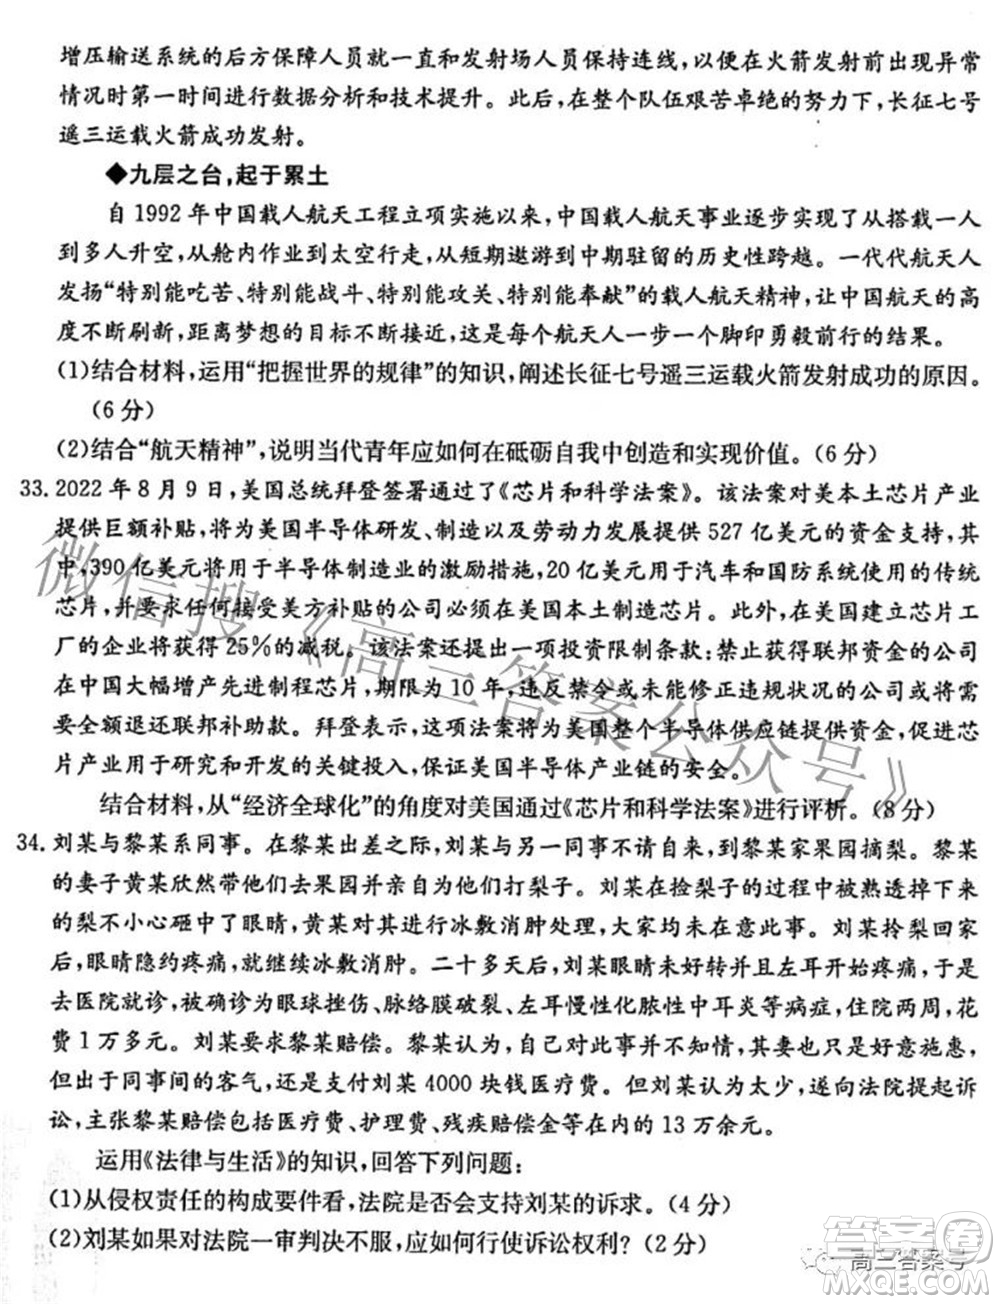 增压输送系统的后方保障人员就一直和发射场人员保持连线,以便在火箭发射前出现异常
情况时第一时间进行数据分析和技术提升。此后,在整个队伍艰苦卓绝的努力下,长征七号
遥三运载火箭成功发射。
◆九层之台,起于累土
自 1992 年中国载人航天工程立项实施以来,中国载人航天事业逐步实现了从搭载一人
到多人升空,从舱内作业到太空行走,从短期遨游到中期驻留的历史性跨越。一代代航天人
发扬“特别能吃苦、特别能战斗、特别能攻关、特别能奉献”的载人航天精神,让中国航天的高
度不断刷新,距离梦想的目标不断接近,这是每个航天人一步一个脚印勇毅前行的结果。
(1)结合材料,运用“把握世界的规律”的知识,阐述长征七号遥三运载火箭发射成功的原因。
(6 分)
(2)结合“航天精神”,说明当代青年应如何在砥砺自我中创造和实现价值。(6 分)
33. 2022 年 8 月 9 日,美国总统拜登签署通过了《芯片和科学法案》。该法案对美本土芯片产业
提供巨额补贴,将为美国半导体研发、制造以及劳动力发展提供 527 亿美元的资金支持,其
中,390 亿美元将用于半导体制造业的激励措施,20 亿美元用于汽车和国防系统使用的传统
芯片,并要求任何接受美方补贴的公司必须在美国本土制造芯片。此外,在美国建立芯片工
厂的企业将获得 25%的减税。该法案还提出一项投资限制条款:禁止获得联邦资金的公司
在中国大幅增产先进制程芯片,期限为 10 年,违反禁令或未能修正违规状况的公司或将需
要全额退还联邦补助款。拜登表示,这项法案将为美国整个半导体供应链提供资金,促进芯
片产业用于研究和开发的关键投入,保证美国半导体产业链的安全。
结合材料,从“经济全球化”的角度对美国通过《芯片和科学法案》进行评析。(8 分)
34. 刘某与黎某系同事。在黎某出差之际,刘某与另一同事不请自来,到黎某家果园摘梨。黎某
的妻子黄某欣然带他们去果园并亲自给他们打梨子。刘某在捡梨子时被熟透掉下来
的梨不小心砸中了眼睛,黄某对其进行冰敷消肿处理,大家均未在意此事。刘某拎梨回家
后,眼睛隐约疼痛,就继续冰敷消肿。二十多天后,因刘某眼睛无法睁开且开始疼痛,于是
去医院就诊,被确诊为眼球挫伤、脉络膜破裂、左耳慢性化脓性中耳炎等病症,住院两周,花
费 1 万多元。刘某要求黎某赔偿。黎某认为,自己对此事并不知情,其妻也是好意施惠,
但出于同事间的客气,还是支付刘某 4000 块钱医疗费。但刘某认为太少,遂向法院提起诉
讼,主张黎某赔偿包括医疗费、护理费、残疾赔偿金等在内的 13 万余元。
运用《法律与生活》的知识,回答下列问题:
(1)从侵权责任的构成要件看,法院是否会支持刘某的诉求。(4 分)
(2)刘某如果对法院一审判决不服,应如何行使诉讼权利?(2 分)
微信搜《高三答案公众号》
答案卷
高三答案号
MXQE.COM